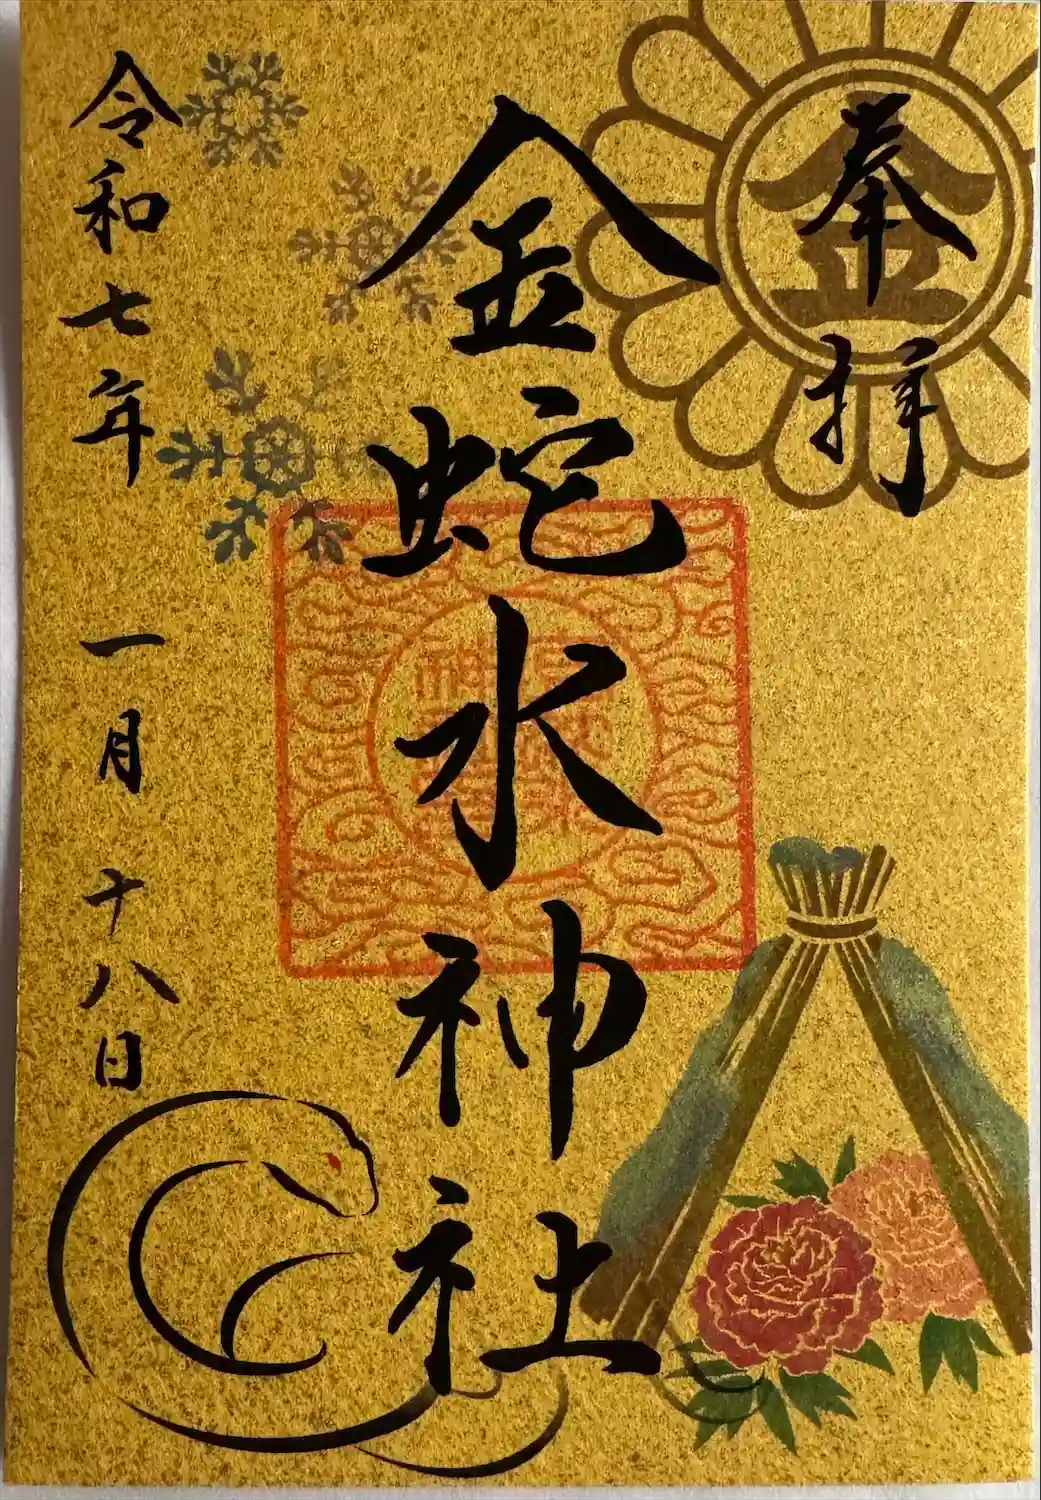 奉拝
金
金蛇水神社
令和七年一月十八日